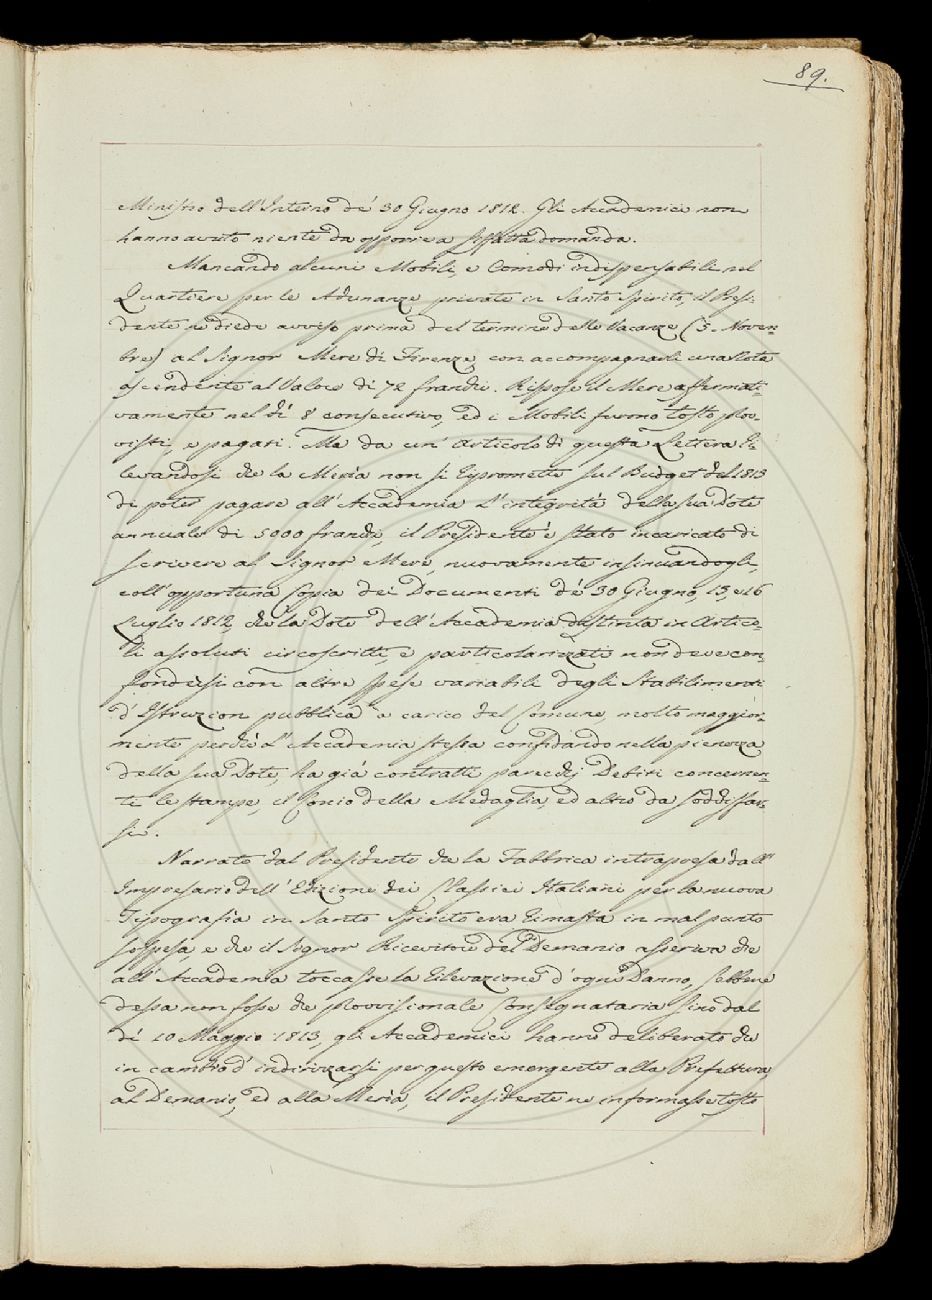 89.
Ministro dell'Interno de' 30 Giugno 1812. Gli Accademici non
hanno avuto niente da opporre a siffatta domanda.
Mancando alcuni Mobili, e Comodi indispensabili nel
Quartiere per le Adunanze private in Santo Spirito, il Presi-
dente ne diede avviso prima del termine delle Vacanze (5. Novem-
bre) al Signor Mere di Firenze con accompagnarli una Nota
ascendente al Valore di 72 franchi. Rispose il Mere affermati-
vamente nel dì 8 consecutivo, ed i Mobili furono tosto prov-
visti, e pagati. Ma da un' Articolo di questa Lettera ri-
levandosi che la Merìa non si ripromette sul Budget del 1813
di poter pagare all' Accademia l'integrità della sua Dote
annuale di 5000 franchi, il Presidente è stato incaricato di
scrivere al Signor Mere, nuovamente insinuandogli,
coll'opportuna Copia dei Documenti de' 30 Giugno, 13, e 16
Luglio 1812, che la Dote dell' Accademia distinta in Artico-
li assoluti circoscritti, e particolarizzati non deve con-
fondersi con altre spese variabili degli Stabilimenti
d'Istruzion pubblica a carico del Comune, molto maggior-
mente perchè l' Accademia stessa confidando nella pienezza
della sua Dote, ha già contratti parecchj Debiti concernen-
ti le stampe, il Conio della Medaglia, ed altro da soddisfar-
si.
Narrato dal Presidente che la Fabbrica intrapresa dall'
Impresario dell' Edizione dei Classici Italiani per la nuova
Tipografia in Santo Spirito era rimasta in mal punto
sospesa, e che il Signor Ricevitore del Demanio asseriva che
all' Accademia toccasse la rilevazione d'ogni Danno, sebbene
dessa non fosse che provvisionale Consegnataria sino dal
dì 10 Maggio 1813, gli Accademici hanno deliberato che
in cambio d' indirizzarsi per questo emergente alla Prefettura,
al Demanio, ed alla Merìa, il Presidente ne informasse tosto